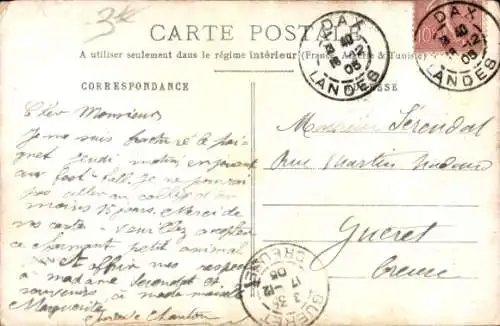 3
CARTE POSTALE
A utiliser seulement dans le régime intérieur (France, Algérie & Tunisie)
DAX
LANDES
10
DAX
LANDES
CORRESPONDANCE
ADRESSE
Cher Monsieur
Je me suis fracturé le poi-
gnet jeudi matin en jouant
au foot-ball. Je ne pourrai
pas aller au collège
moins 15 jours. Merci de
vos cartes. Veuillez accepter
ce charmant petit animal
Et offrir mes respects
à madame Sérendat et
souvenirs à made moiselle
Marguerite
Monsieur Sérendat
Rue Martin Nadaud
Guéret
Creuse
GUERET
CREUSE